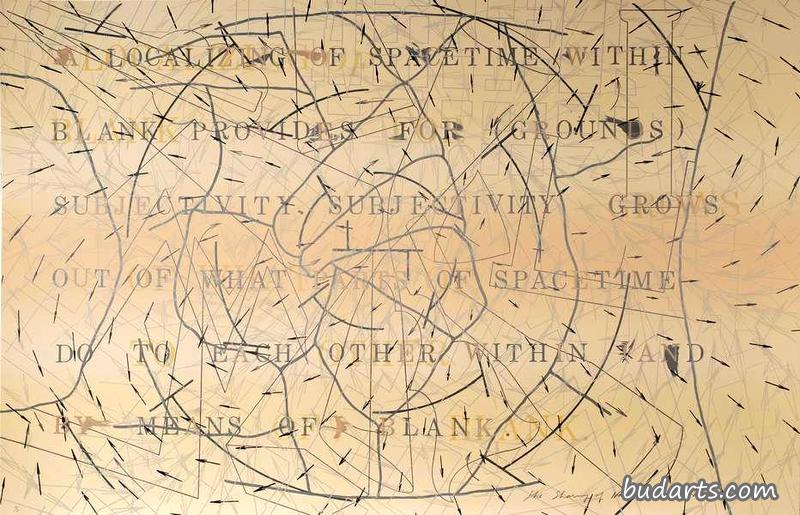 A LOCALIZING OF SPACETIME WITHIN
BLANK PROVIDES FOR (GROUNDS)
SUBJECTIVITY. SUBJECTIVITY GROWS
OUT OF WHAT PARTS OF SPACETIME
DO TO EACH OTHER WITHIN AND
BY MEANS OF BLANK
The Sharing of
budarts.com